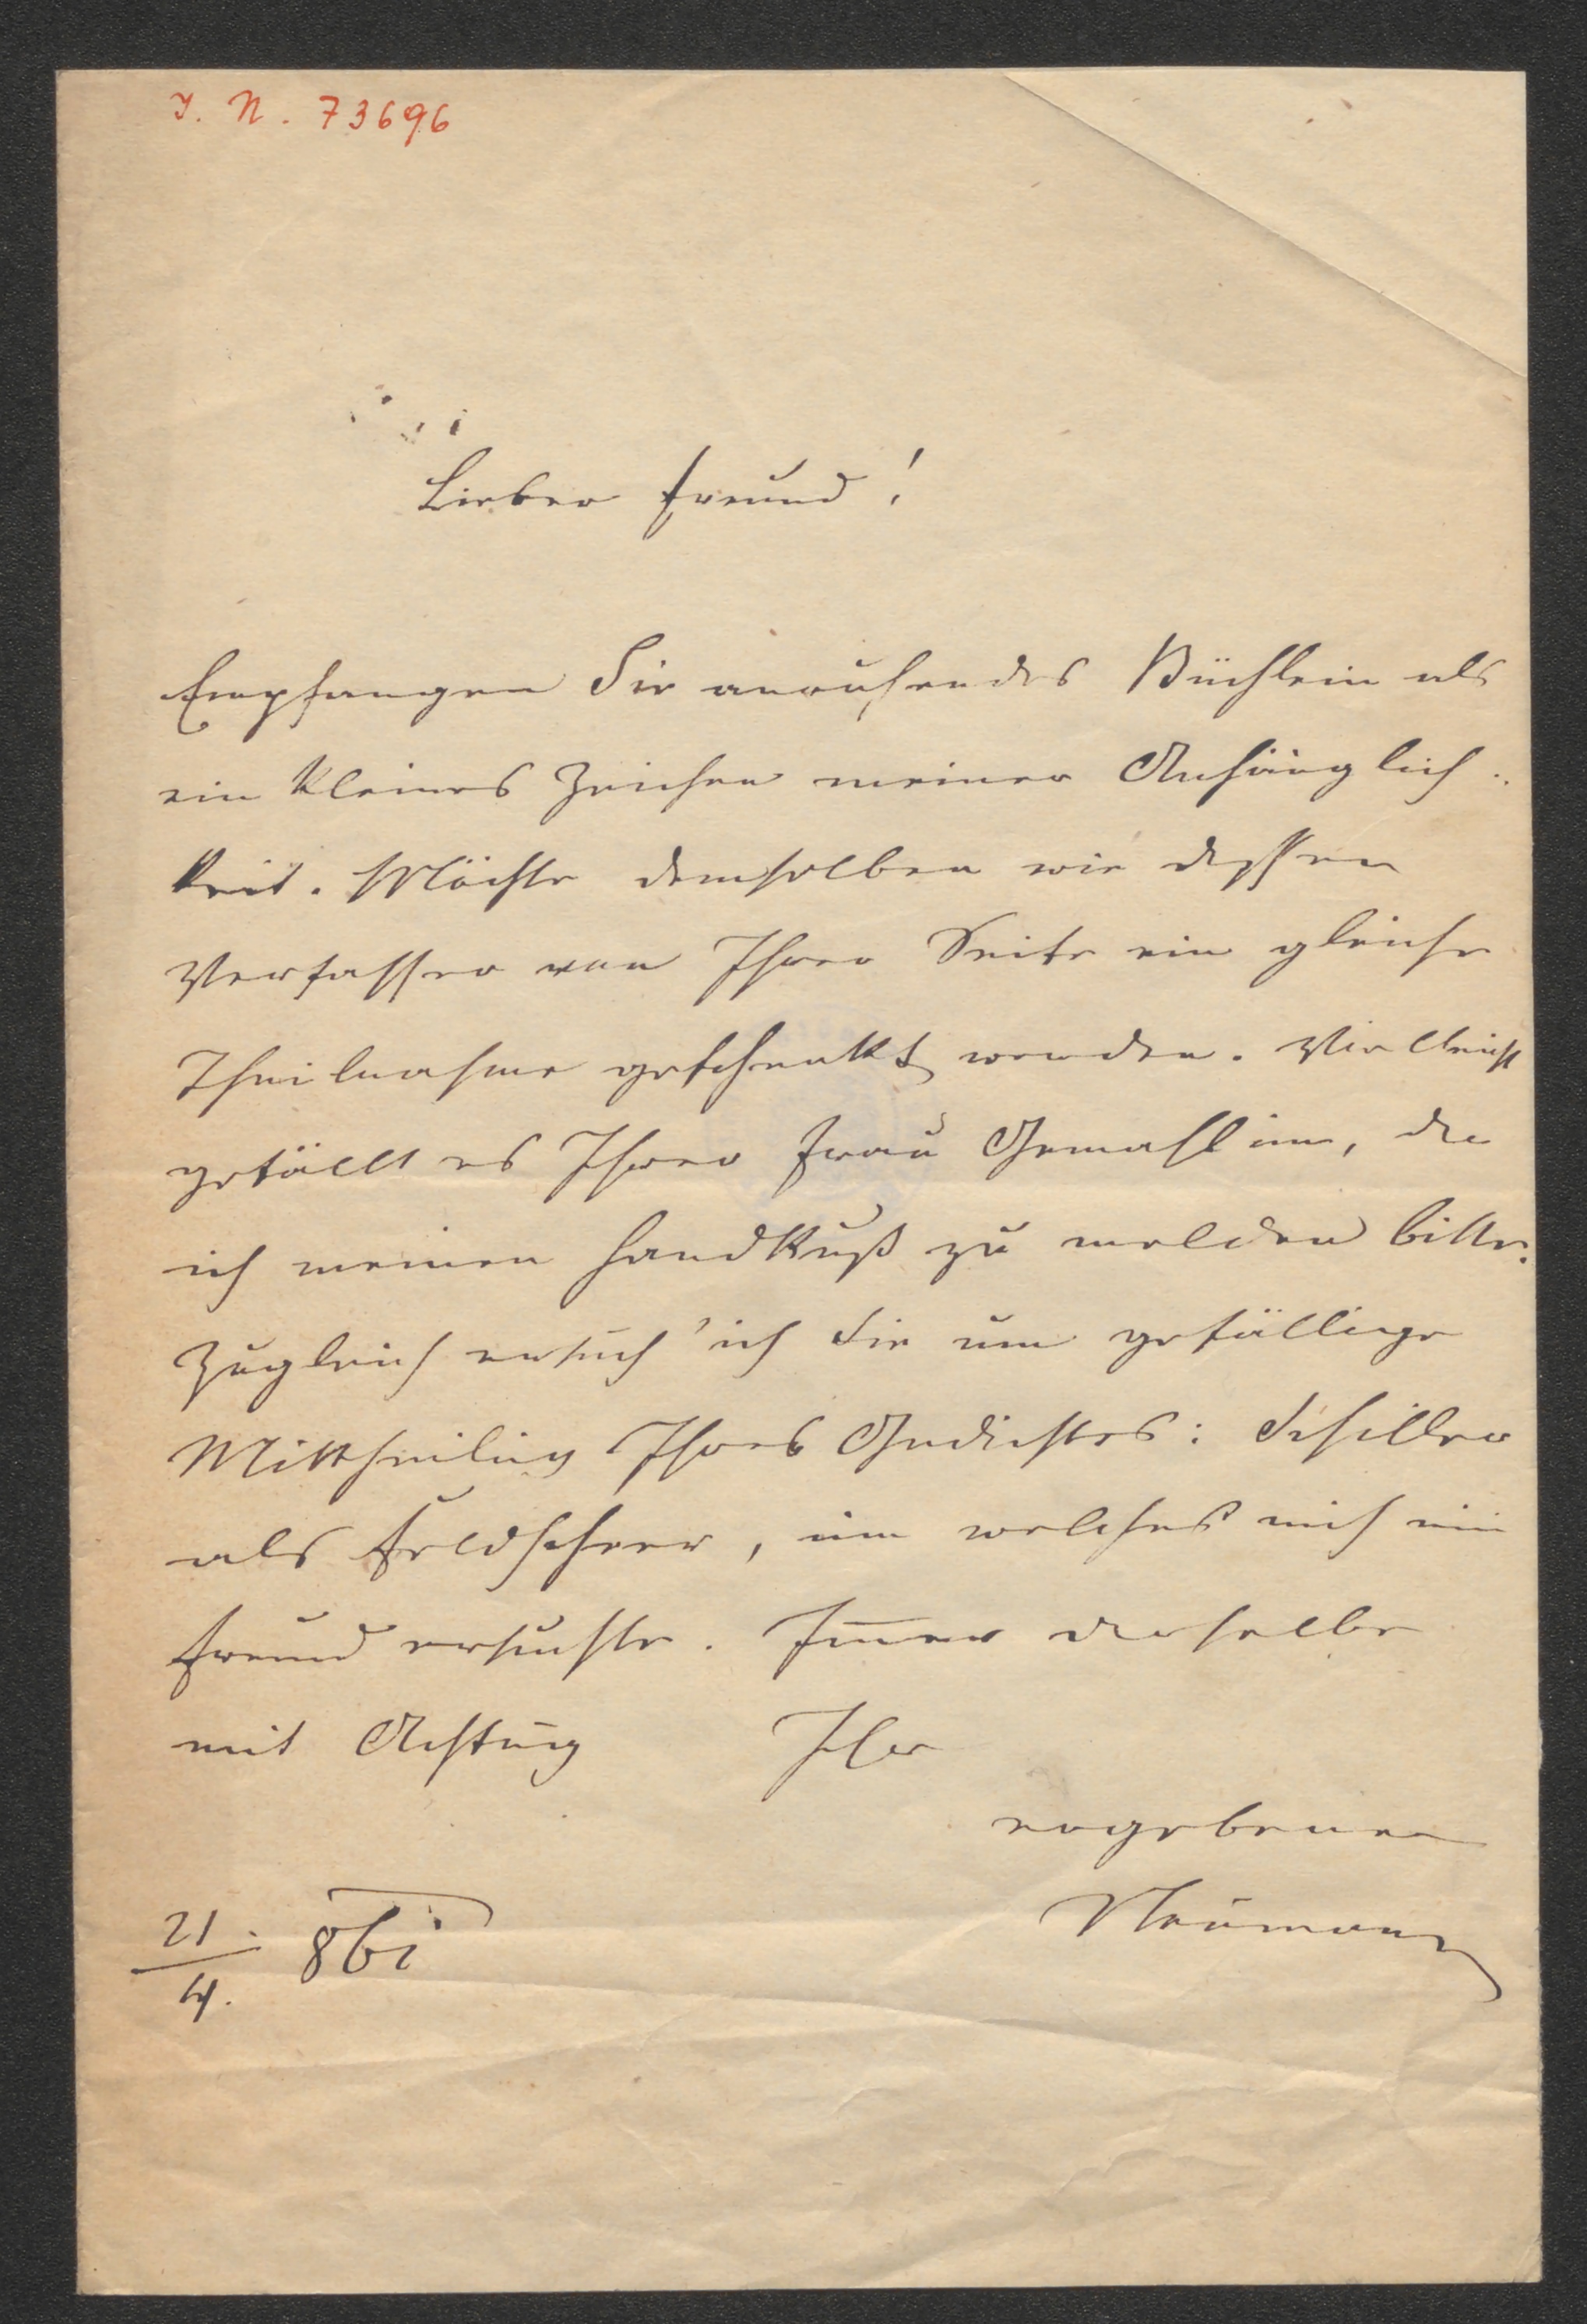 I. N. 73696
Lieber Freund!
Empfangen Sie anruhendes Büchlein als
ein kleines Zeichen meiner Anhänglich-
keit. Möchte demselben wie dessen
Verfasser von Ihrer Seite ein gleiche
Theilnahme geschenkt werden. Vielleicht
gefällt es Ihrer Frau Gemahlinn, der
ich meinen Handkuß zu melden bitte.
Zugleich ersuch' ich Sie um gefällige
Mittheilung Ihres Gedichtes: Schiller
als Feldscheer, um welches mich ein
Freund ersuchte. Im̅er derselbe
mit Achtung Ihr
ergebener
Neumann
21./4.